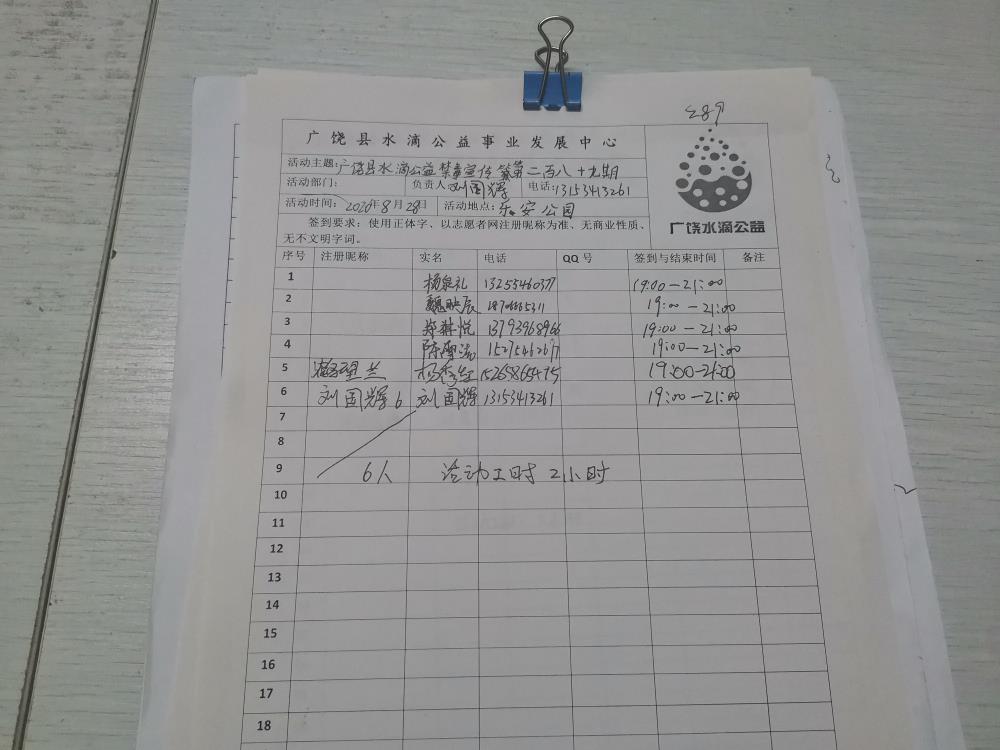 289
广饶县水滴公益事业发展中心
活动主题:广饶县水滴公益禁毒宣传第二百八十九期
活动部门: 负责人 刘国辉 电话:13153413261
活动时间:2020年8月28日 活动地点:乐安公园
签到要求:使用正体字、以志愿者网注册昵称为准、无商业性质、
无不文明字词。
广饶水滴公益
序号 注册昵称 实名 电话 QQ号 签到与结束时间 备注
1 杨泉礼 13255460377 19:00-21:00
2 19:00-21:00
3 13793968966 19:00-21:00
4 19:00-21:00
5 15265865475 19:00-21:00
6 刘国辉6 刘国辉 13153413261 19:00-21:00
7
8
9 6人 活动工时 2小时
10
11
12
13
14
15
16
17
18